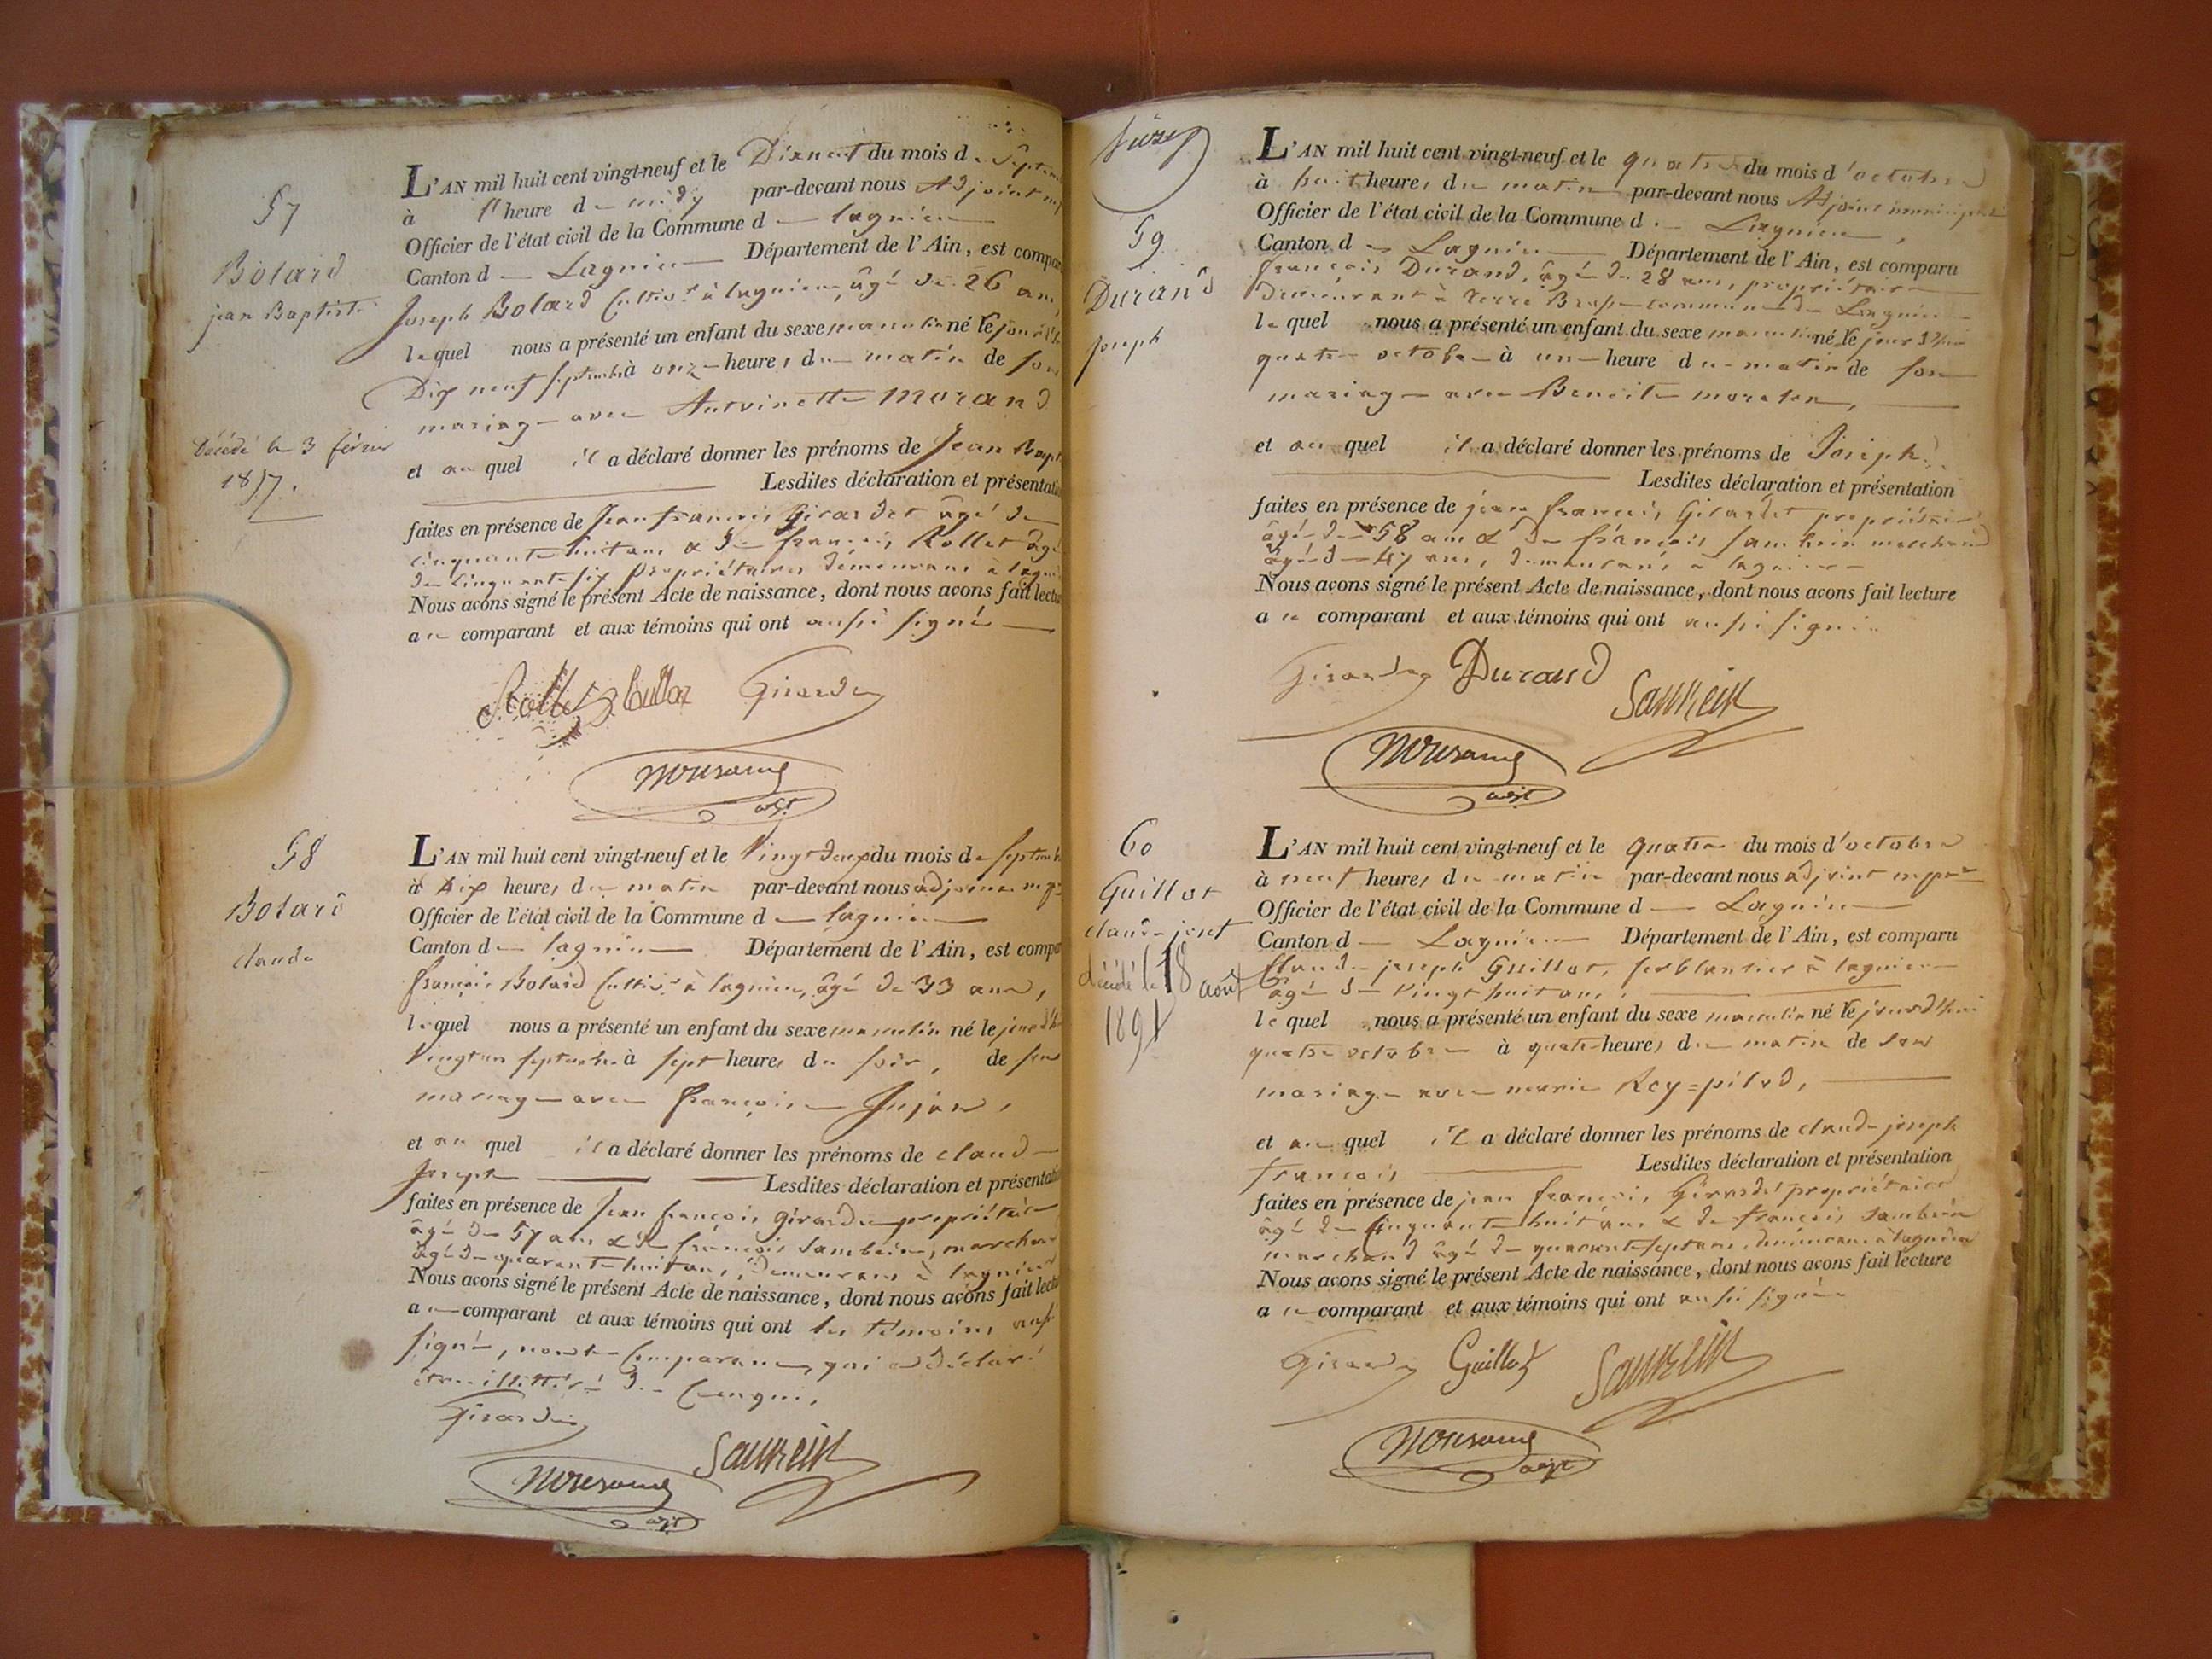 57
Bolard
jean Baptiste
Décédé le 3 février
L'AN mil huit cent vingt-neuf et le Dixneuf du mois de Septem
à l'heure de midy par-devant nous Adjoint
Officier de l'état civil de la Commune de lagnieu
Canton de Lagnieu Département de l'Ain, est compar
Joseph Bolard Cultivr à lagnieu, âgé de 26 ans,
lequel nous a présenté un enfant du sexe masculin né le
Dix neuf septembre à onze heures du matin de son
mariage avec Antoinette Morand
et au quel il a déclaré donner les prénoms de Jean Bapt
Lesdites déclaration et présentatio
faites en présence de Jean françois Girardet âgé de
cinquante huit ans & de françois Rollet âgé
de cinquante six propriétaires demeurans à lagn
Nous avons signé le présent Acte de naissance, dont nous avons fait lectu
au comparant et aux témoins qui ont aussi signé
Girardet
adjt
58
Bolard
claude
L'AN mil huit cent vingt-neuf et le Vingt deux du mois de septemb
à Dix heures du matin par-devant nous adjoint
Officier de l'état civil de la Commune de lagnieu
Canton de lagnieu Département de l'Ain, est compar
françois Bolard Cultivr à lagnieu, âgé de 33 ans,
lequel nous a présenté un enfant du sexe masculin né le
Vingt un septembre à sept heures du soir, de son
mariage avec françoise Jujat,
et au quel il a déclaré donner les prénoms de claude
Joseph Lesdites déclaration et présentati
faites en présence de Jean françois girardet propriétaire
âgé de 57 ans & de françois Sambein, marchand
âgé de quarante huit ans, demeurans à lagnieu
Nous avons signé le présent Acte de naissance, dont nous avons fait lectu
au comparant et aux témoins qui ont les témoins aussi
signé, non le Comparant, qui a déclaré
être illettré de ce enquis,
Girardet
Sambein
adjt
59
Durand
joseph
L'AN mil huit cent vingt-neuf et le quatre du mois d'octobre
à huit heures du matin par-devant nous Adjoint municipal
Officier de l'état civil de la Commune de Lagnieu,
Canton de Lagnieu Département de l'Ain, est comparu
françois Durand, âgé de 28 ans, propriétaire
demeurant à commune de Lagnieu
lequel nous a présenté un enfant du sexe masculin né le jourd'hui
quatre octobre à une heure du matin de son
mariage avec Benoite
et au quel il a déclaré donner les prénoms de Joseph.
Lesdites déclaration et présentation
faites en présence de jean françois Girardet propriétaire
âgé de 58 ans & de françois Sambein marchand
âgé de 47 ans, demeurans à lagnieu
Nous avons signé le présent Acte de naissance, dont nous avons fait lecture
au comparant et aux témoins qui ont aussi signé
Girardet Durand Sambein
adjt
60
Guillot
claude
décédé le 18 août
L'AN mil huit cent vingt-neuf et le quatre du mois d'octobre
à neuf heures du matin par-devant nous adjoint
Officier de l'état civil de la Commune de Lagnieu
Canton de Lagnieu Département de l'Ain, est comparu
Claude joseph Guillot, ferblantier à lagnieu
âgé de vingt huit ans,
lequel nous a présenté un enfant du sexe masculin né le jourd'hui
quatre octobre à quatre heures du matin de son
mariage avec marie Rey=pilod,
et au quel il a déclaré donner les prénoms de claude joseph
francois Lesdites déclaration et présentation
faites en présence de jean françois Girardet propriétaire
âgé de cinquante huit ans & de francois Sambein
marchand âgé de quarante sept ans, demeurans à lagnieu
Nous avons signé le présent Acte de naissance, dont nous avons fait lecture
au comparant et aux témoins qui ont aussi signé
Girardet Guillot Sambein
adjt